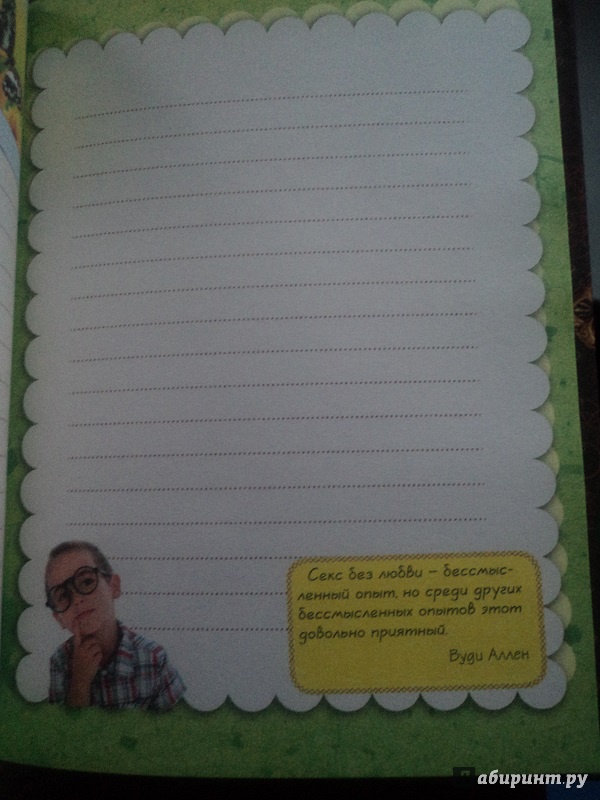 Секс без любви – бессмыс-
ленный опыт, но среди других
бессмысленных опытов этот
довольно приятный.
Вуди Аллен
Лабиринт.ру